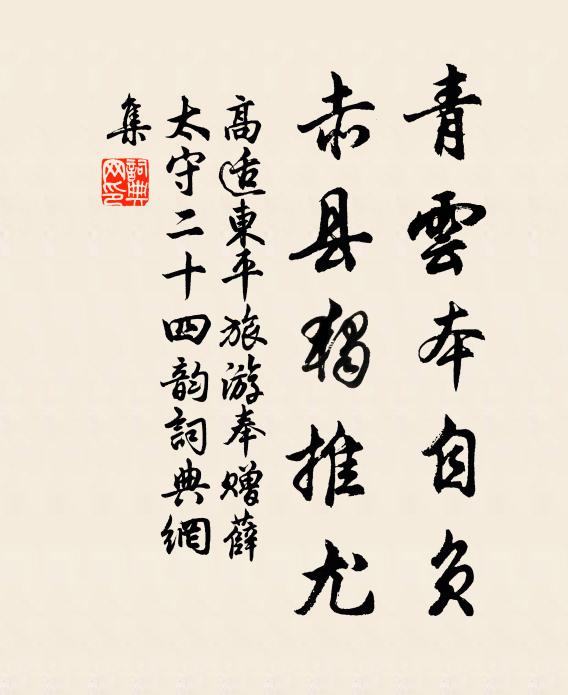 青雲本自负
赤县独推尤
高适東平旅游奉赠薛
太守二十四韵詞典網
集
詞典網印